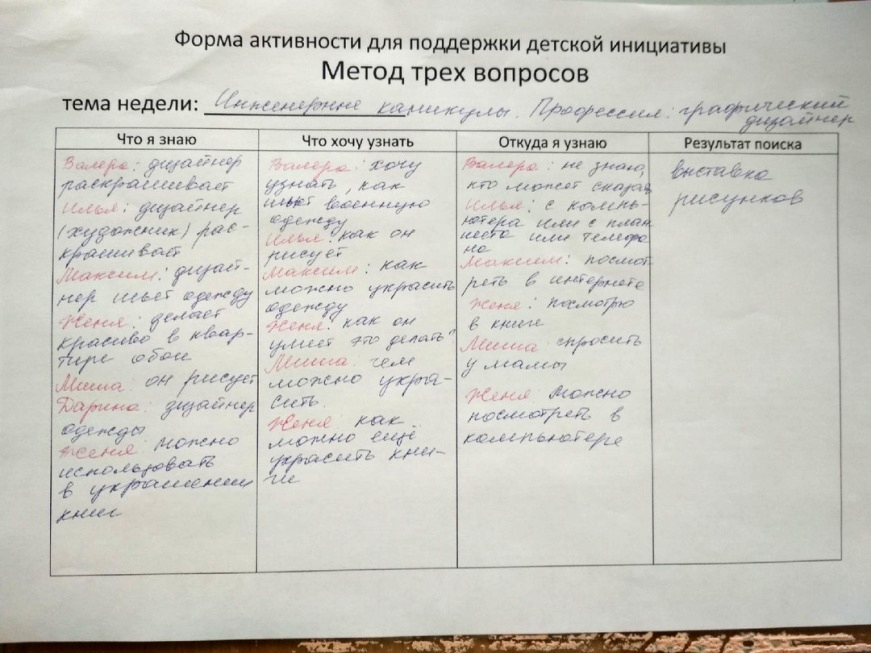 Форма активности для поддержки детской инициативы
Метод трех вопросов
тема недели: Инженерные каникулы. Профессия: графический
дизайнер
Что я знаю
Валера: дизайнер
раскрашивает
Илья: дизайнер
(художник) рас-
крашивает
Максим: дизай-
нер шьет одежду
Женя: делает
красиво в квар-
тире обои
Миша: он рисует
Дарина: дизайнер
одежды
Женя: можно
использовать
в украшении
книг
Что хочу узнать
Валера: хочу
узнать, как
шьет военную
одежду
Илья: как он
рисует
Максим: как
можно украсить
одежду
Женя: как он
умеет это делать
Миша: чем
можно укра-
сить.
Женя: как
можно ещё
украсить кни-
ги
Откуда я узнаю
Валера: не знаю,
кто может сказать
Илья: с компь-
ютера или с план
шета или телефо
на
Максим: посмот
реть в интернете
Женя: посмотрю
в книге
Миша: спросить
у мамы
Женя: можно
посмотреть в
компьютере
Результат поиска
выставка
рисунков